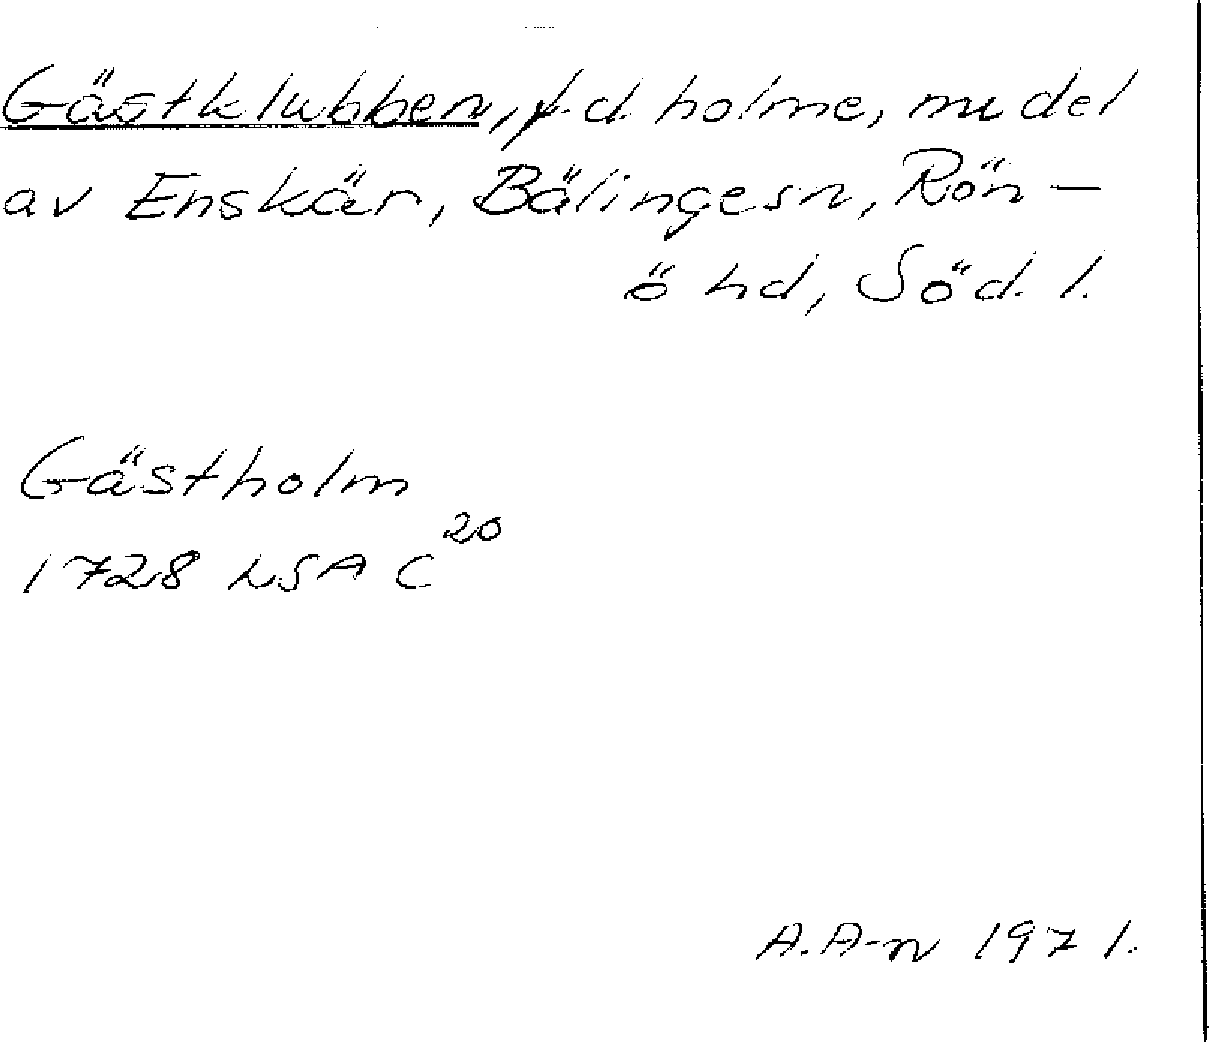 Gästklubben, f.d. holme, nu del
av Enskär, Bälinge sn, Rön-
ö hd, Söd. l.
Gästholm
1728 LSA C 20
A. A-n 1971.